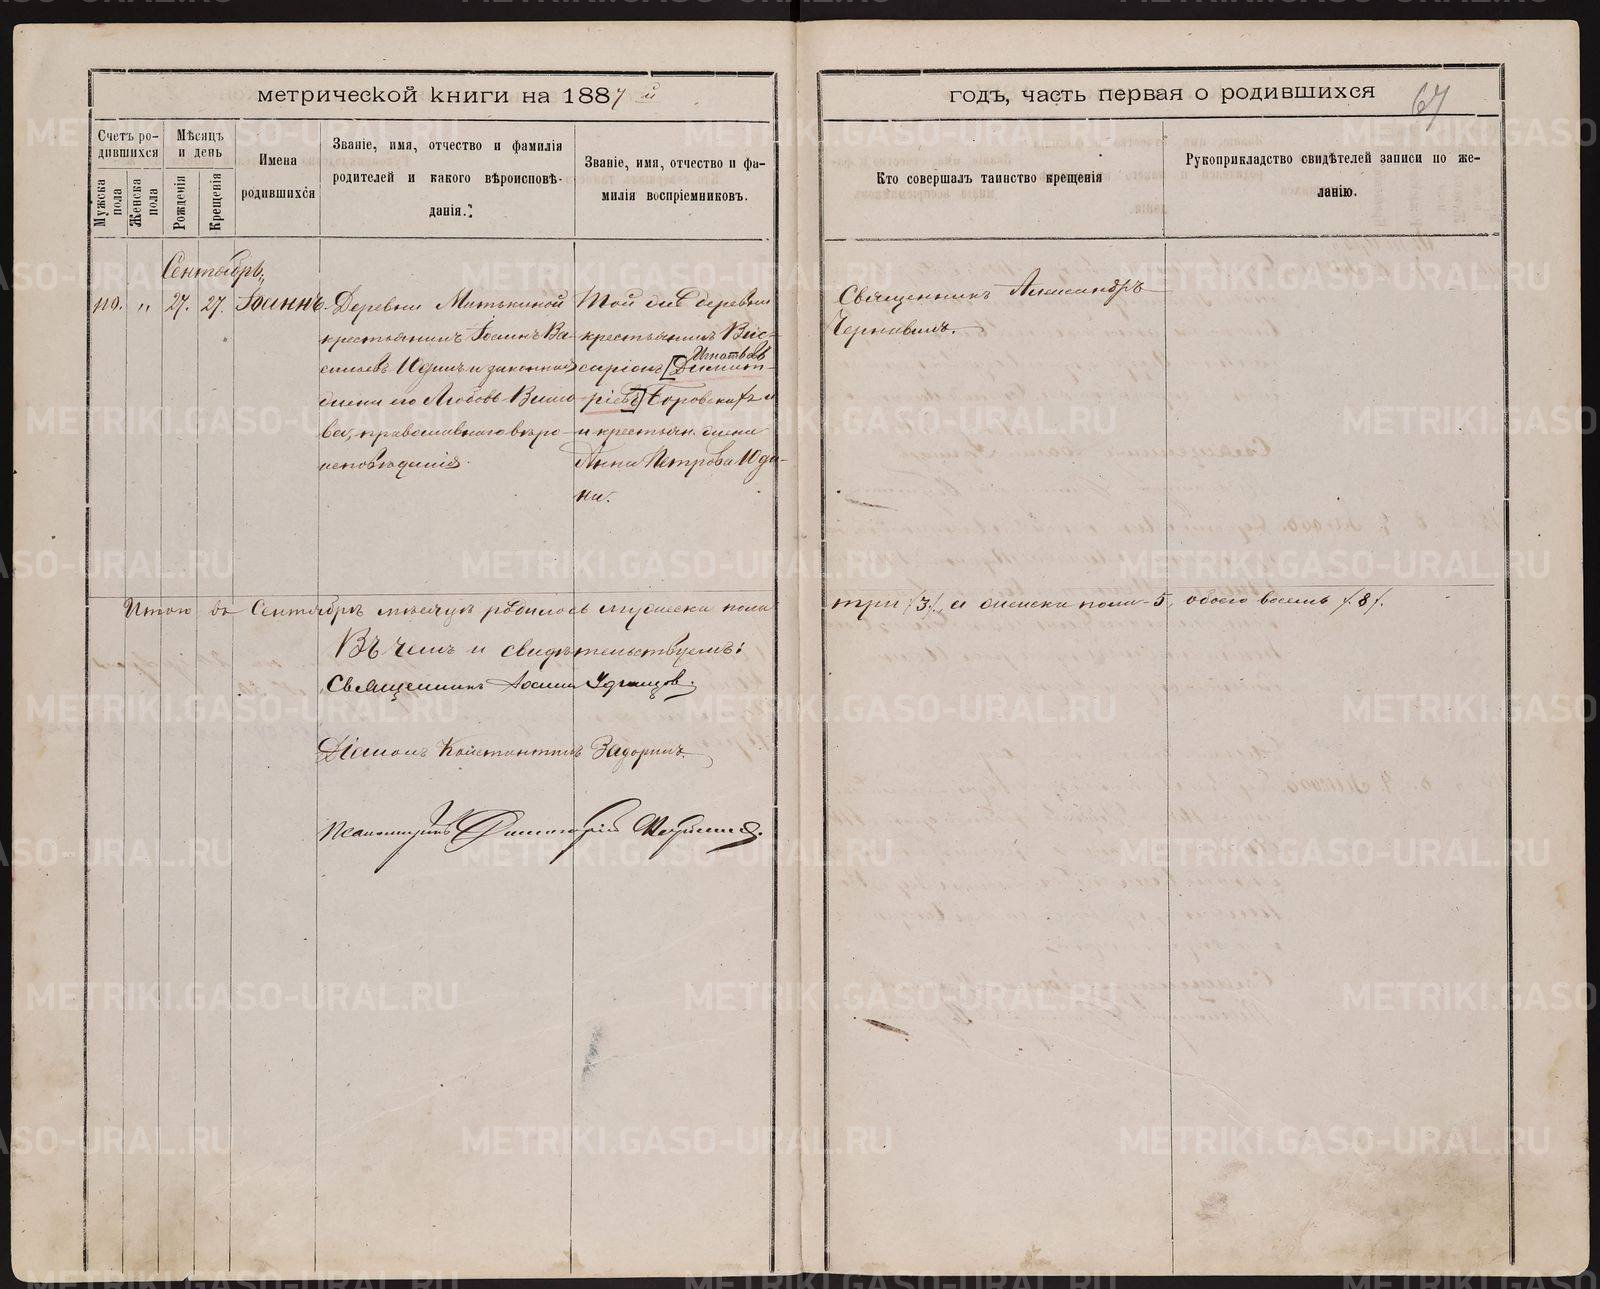 метрической книги на 1887 й
годъ, часть первая о родившихся
67
Счетъ ро-
дившихся
Мужска
пола
Женска
пола
Мѣсяцъ
и день
Рожденія
Крещенія
Имена
родившихся
Званіе, имя, отчество и фамилія
родителей и какого вѣроисповѣ-
данія.
Званіе, имя, отчество и фа-
милія воспріемниковъ.
Кто совершалъ таинство крещенія
Рукоприкладство свидѣтелей записи по же-
ланію.
Сентябрь.
110. „ 27. 27. Іоаннъ.
Деревни Митькиной
крестьянинъ Іоаннъ Ва-
сильевъ Юдинъ и законная
жена его Любовь
православнаго вѣро-
исповѣданія.
Той же деревни
крестьянинъ Вис-
саріонъ [Димит-
Игнатьевъ
ріевъ] Боровскихъ и
и крестьян. жена
Анна Петрова Юди-
на.
Священникъ Александръ
Чернавинъ.
Итого въ Сентябрѣ мѣсяцѣ родилось мужеска пола
три /3/, а женска пола - 5, обоего восемь /8/.
Въ чемъ и свидѣтельствуемъ:
Священникъ Іоаннъ Удинцов.
Діаконъ Константинъ Задоринъ.
Псаломщикъ Димитрій
METRIKI.GASO-URAL.RU